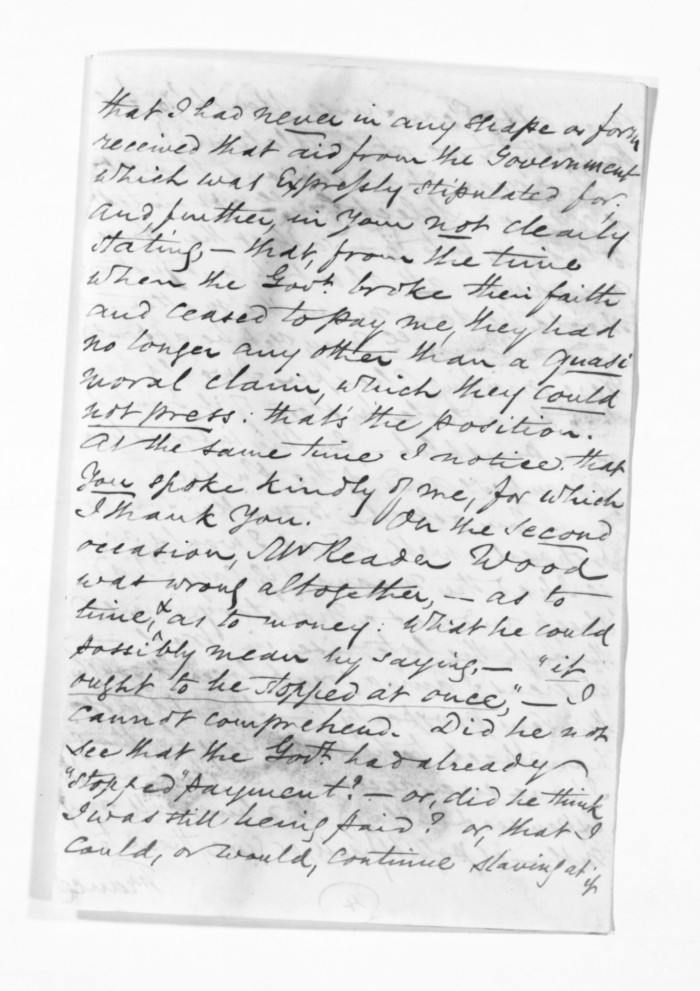 that I had never in any shape or form
received that aid from the Government
which was Expressly stipulated for;
and, further, in Your not clearly
stating, — that, from the time
when the Govt. broke their faith
and ceased to pay me, they had
no longer any other than a quasi
moral claim, which they could
not press: that's the position.
At the same time I notice that
You spoke kindly of me, for which
I thank You. On the second
occasion, Mr Reader Wood
was wrong altogether, — as to
time, & as to money: what he could
possibly mean by saying, — "it
ought to be stopped at once," — I
cannot comprehend. Did he not
see that the Govt. had already
"stopped" payment? — or, did he think
I was still being paid? or, that I
could, or would, continue slaving at it